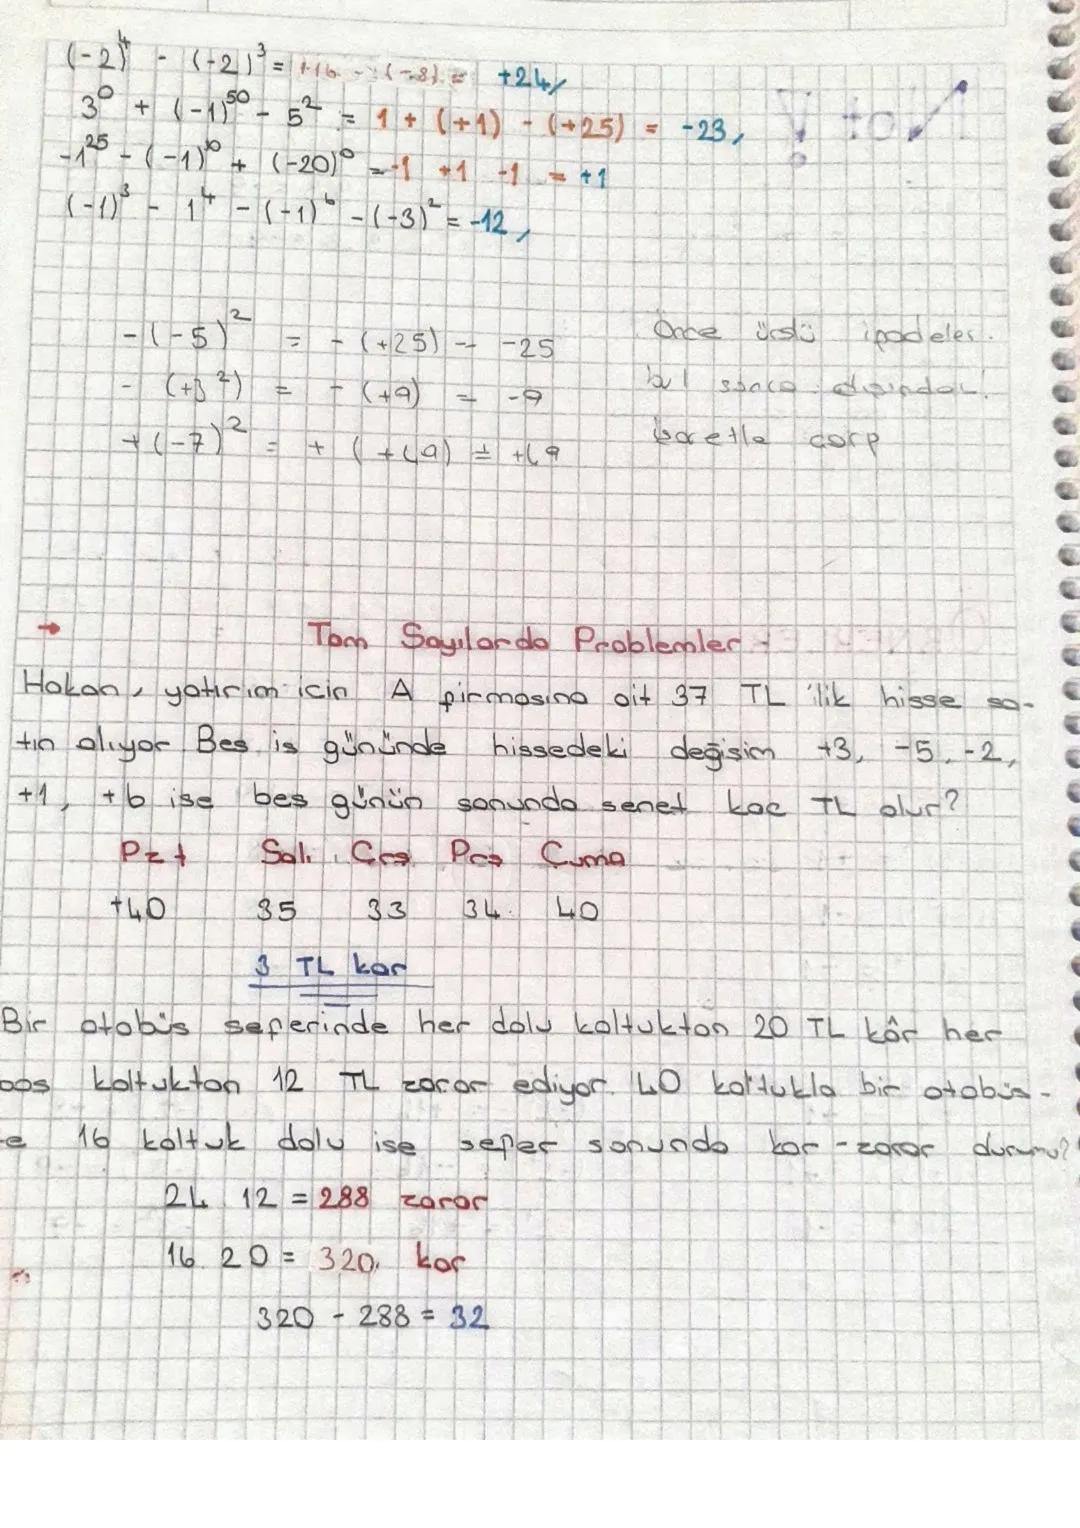 (-2)⁴ - (-2)³ = +16 - (-8) = +24
3⁰ + (-1)⁵⁰ - 5² = 1 + (+1) - (+25) = -23
-1²⁵ - (-1)¹⁰ + (-20)⁰ = -1 +1 -1 = +1
(-1)³ - 1⁴ - (-1)⁶ - (-3)² = -12
-(-5)² = -(+25) = -25 Önce üslü ifadeler.
- (+3²) = - (+9) = -9 sonra
+(-7)² = + (+49) = +49 işaretle çarp
→ Tam Sayılarda Problemler
Hakan, yatırım için A firmasına ait 37 TL'lik hisse sa-
tın alıyor Beş iş gününde hissedeki değişim +3, -5, -2,
+1, +6 ise beş günün sonunda senet kaç TL olur?
Pzt Salı Çrş Prş Cuma
+40 35 33 34 40
3 TL kar
Bir otobüs seferinde her dolu koltuktan 20 TL kâr her
boş koltuktan 12 TL zarar ediyor. 40 koltukla bir otobüs-
te 16 koltuk dolu ise sefer sonunda kar-zarar durumu?
24 . 12 = 288 zarar
16 20 = 320 kar
320 - 288 = 32